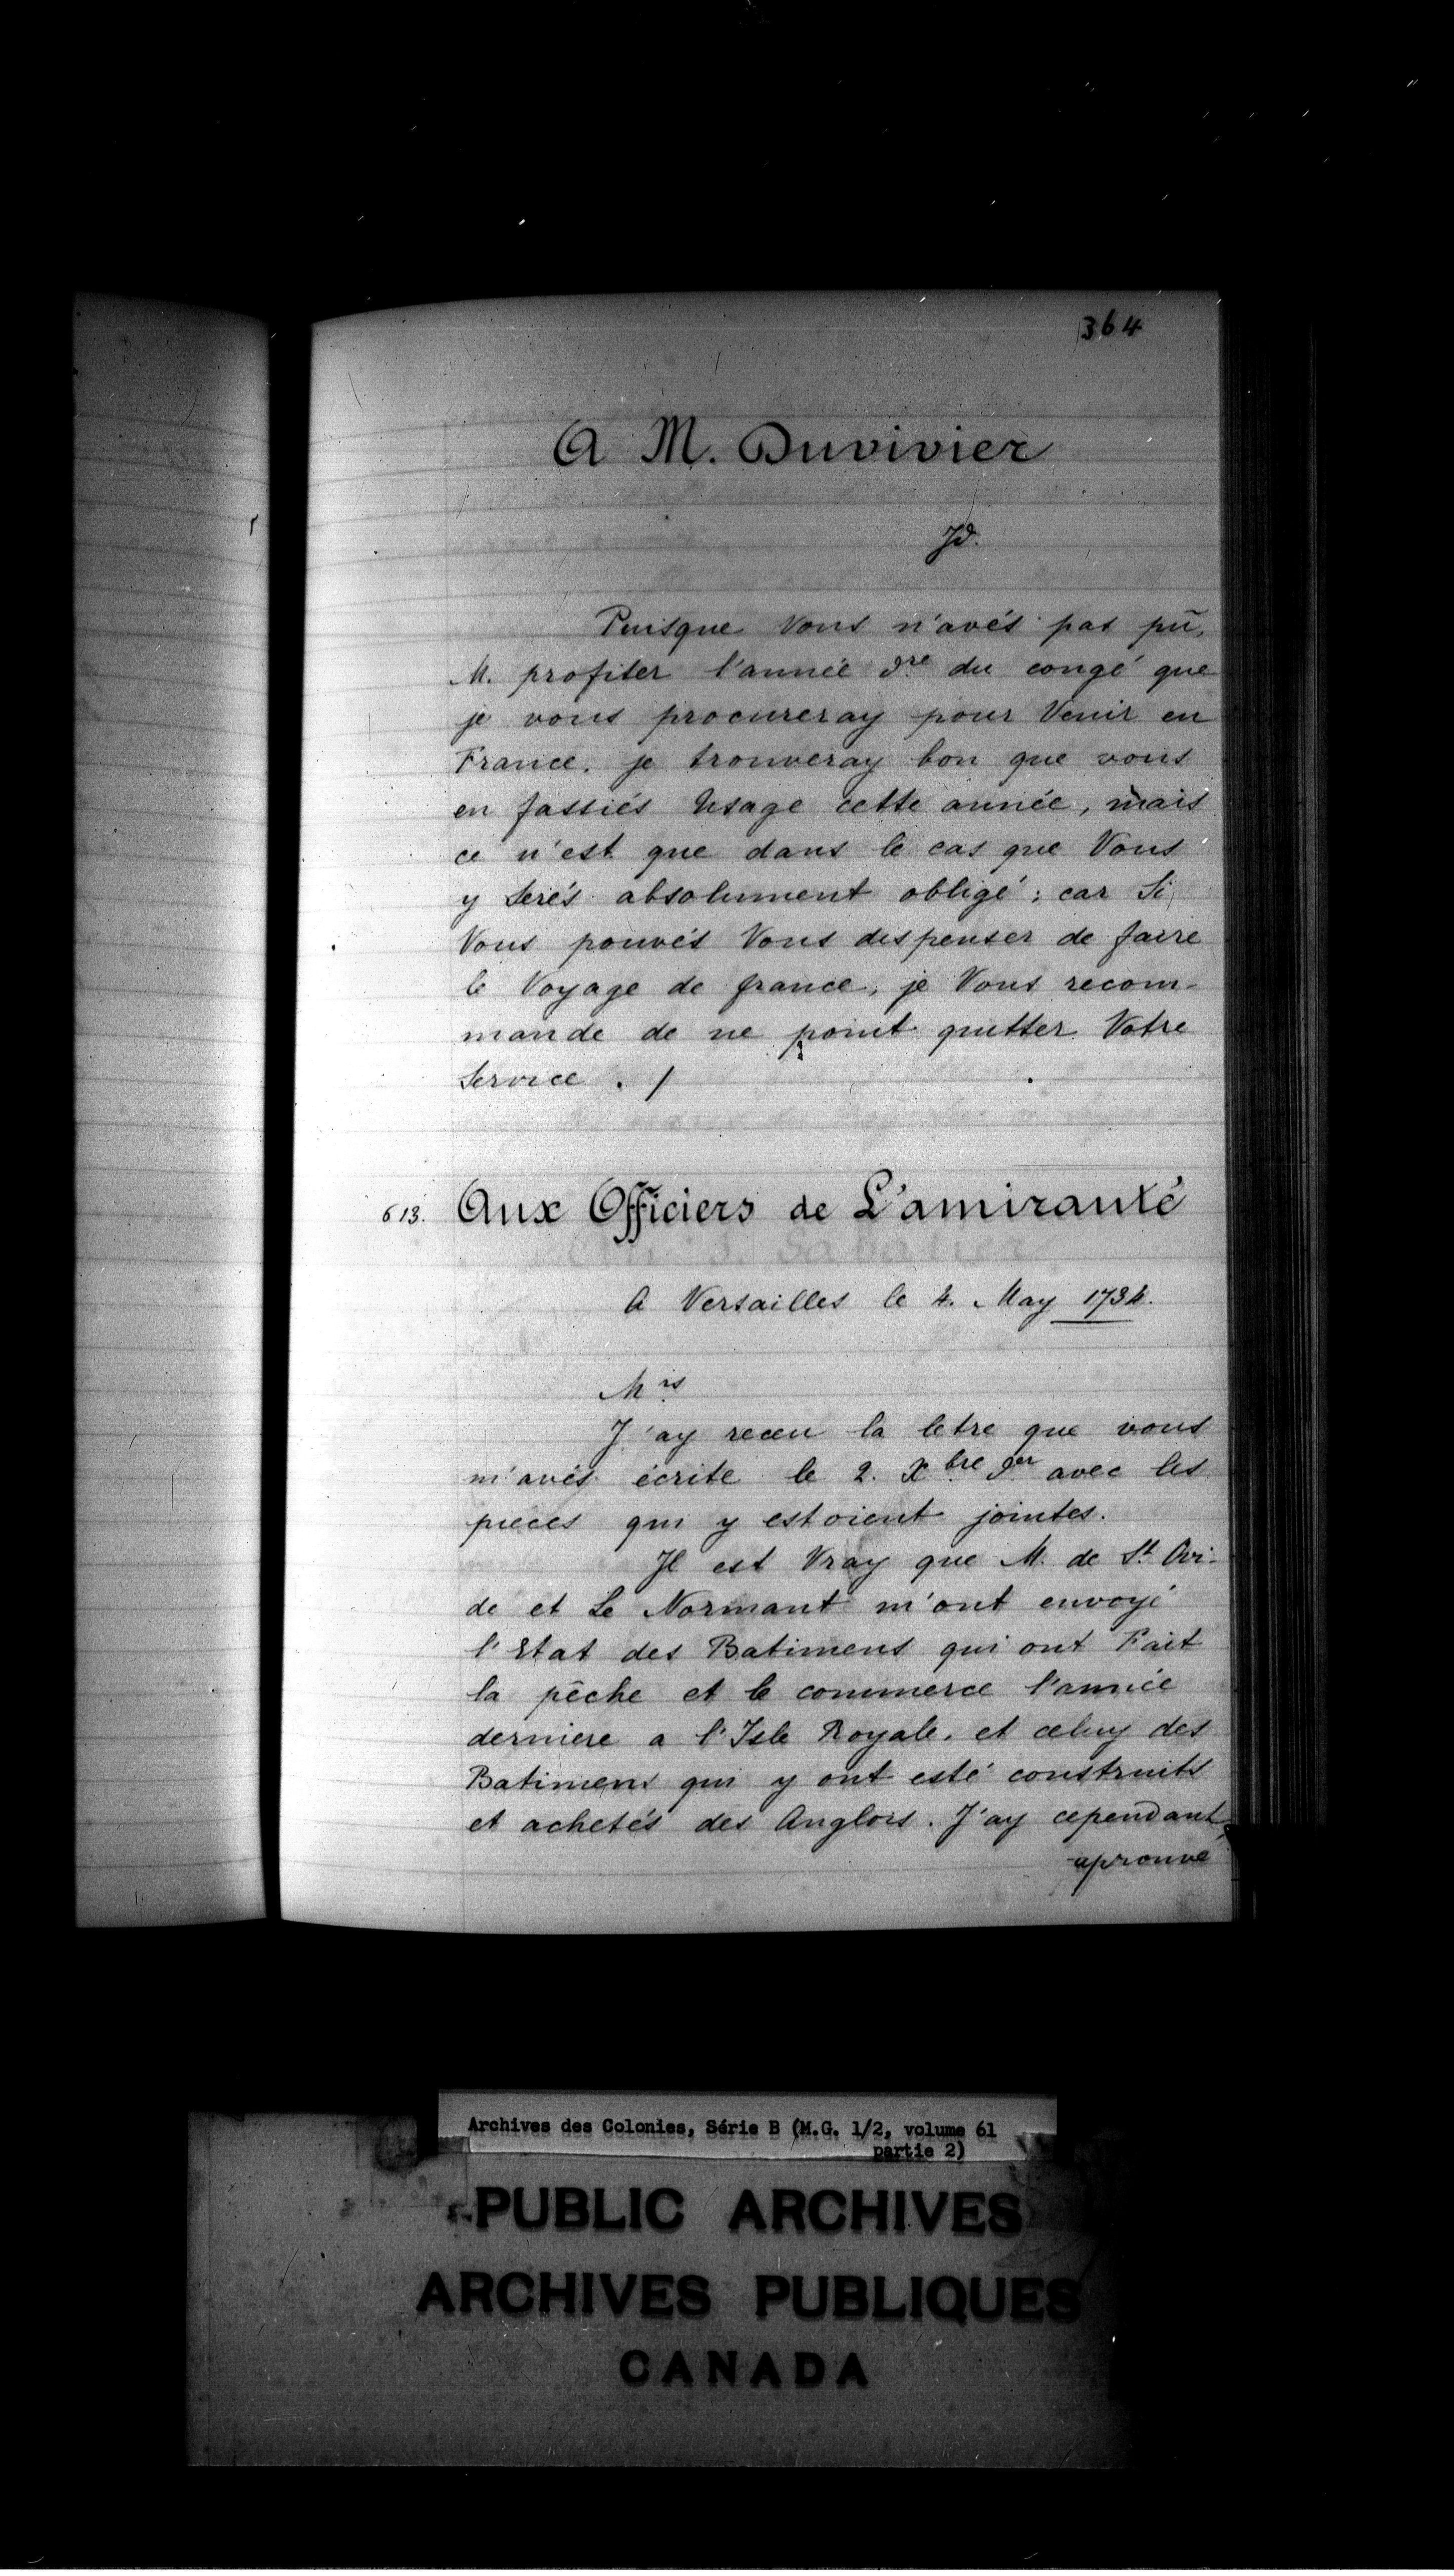 364
A M. Duvivier
Jd.
Puisque Vous n'avés pas pū,
M. profiter l'année dre du congé que
je vous procureray pour Venir en
France. je trouveray bon que vous
en fassiés Usage cette année, mais
ce n'est que dans le cas que Vous
y Serés absolument obligé ; car Si
Vous pouvés Vous dispenser de faire
le Voyage de france, je Vous recom-
mande de ne point quitter Votre
Service . /
613. Aux Officiers de L'amirauté
A Versailles le 4. May 1734.
Mrs
J'ay receu la letre que vous
m'avés écrite le 2. Xbre der avec les
pieces qui y estoient jointes.
Il est Vray que M. de St Ovi-
de et Le Normant m'ont envoyé
l'Etat des Batimens qui ont Fait
la pêche et le commerce l'année
derniere a l'Isle Royale. et celuy des
Batimens qui y ont esté construits
et achetés des Anglois. J'ay cependant
aprouvé
Archives des Colonies, Série B (M.G. 1/2, volume 61
partie 2)
PUBLIC ARCHIVES
ARCHIVES PUBLIQUES
CANADA